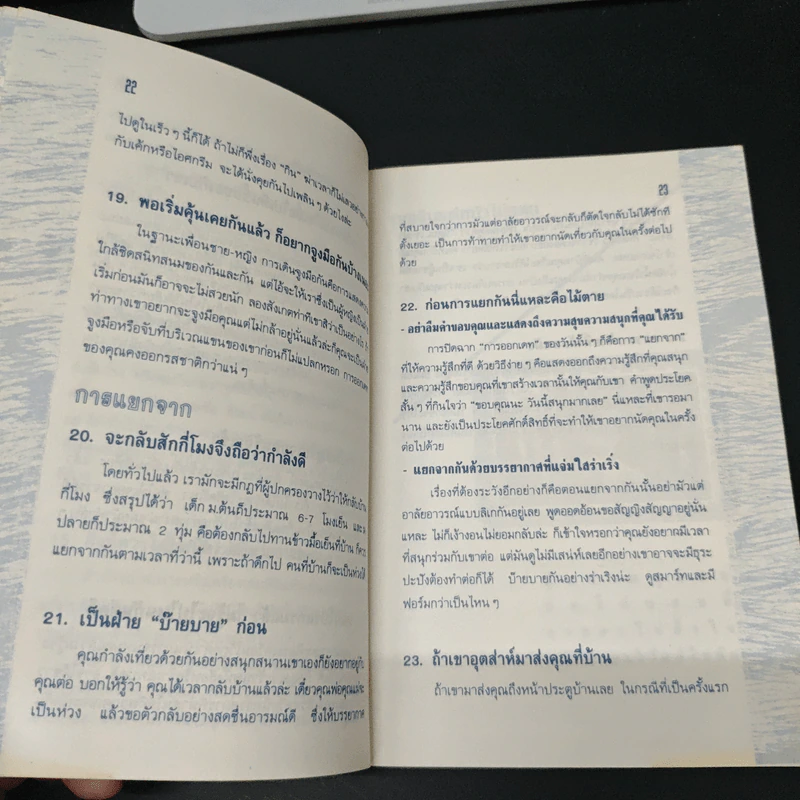 22
ไปดูในเร็ว ๆ นี้ก็ได้ ถ้าไม่ก็พึ่งเรื่อง “กิน” ฆ่าเวลาก็ไม่เลว
กับเค้กหรือไอศกรีม จะได้นั่งคุยกันไปเพลิน ๆ ด้วยไงล่ะ
19. พอเริ่มคุ้นเคยกันแล้ว ก็อยากจูงมือกันบ้าง
ในฐานะเพื่อนชาย-หญิง การเดินจูงมือกันคือการแสดงความ
ใกล้ชิดสนิทสนมของกันและกัน แต่โอ้จะให้เราซึ่งเป็นผู้หญิงเป็น
เริ่มก่อนมันก็อาจจะไม่สวยนัก ลองสังเกตท่าทีเขาสิว่าเป็นอย่างไร ถ้า
ท่าทางเขาอยากจะจูงมือคุณแต่ไม่กล้าอยู่นั่นแล้วล่ะก็คุณจะเป็น
จูงมือหรือจับที่บริเวณแขนของเขาก่อนก็ไม่แปลกหรอก การออกเดท
ของคุณคงออกรสชาติกว่าแน่ ๆ
การแยกจาก
20. จะกลับสักกี่โมงจึงถือว่ากำลังดี
โดยทั่วไปแล้ว เรามักจะมีกฎที่ผู้ปกครองวางไว้ว่าให้กลับบ้าน
กี่โมง ซึ่งสรุปได้ว่า เด็ก ม.ต้นถึงประมาณ 6-7 โมงเย็น และ ม.
ปลายก็ประมาณ 2 ทุ่ม คือต้องกลับไปทานข้าวมื้อเย็นที่บ้าน ก็ควร
แยกจากกันตามเวลาที่ว่านี้ เพราะถ้าดึกไป คนที่บ้านก็จะเป็นห่วงได้
21. เป็นฝ่าย “บ๊ายบาย” ก่อน
คุณกำลังเที่ยวด้วยกันอย่างสนุกสนานเขาเองก็ยังอยากอยู่กับ
คุณต่อ บอกให้รู้ว่า คุณได้เวลากลับบ้านแล้วล่ะ เดี๋ยวคุณพ่อคุณแม่จะ
เป็นห่วง แล้วขอตัวกลับอย่างสดชื่นอารมณ์ดี ซึ่งให้บรรยากาศ
23
ที่สบายใจกว่าการมัวแต่อาลัยอาวรณ์จะกลับก็ตัดใจกลับไม่ได้ซักที
ตั้งเยอะ เป็นการท้าทายทำให้เขาอยากนัดเที่ยวกับคุณในครั้งต่อไป
ด้วย
22. ก่อนการแยกกันนี่แหละคือไม้ตาย
- อย่าลืมคำขอบคุณและแสดงถึงความสุขความสนุกที่คุณได้รับ
การปิดฉาก “การออกเดท” ของวันนั้น ๆ ก็คือการ “แยกจาก”
ที่ให้ความรู้สึกที่ดี ด้วยวิธีง่าย ๆ คือแสดงออกถึงความรู้สึกที่คุณสนุก
และความรู้สึกขอบคุณที่เขาสร้างเวลานั้นให้คุณกับเขา คำพูดประโยค
สั้น ๆ ที่กินใจว่า “ขอบคุณนะ วันนี้สนุกมากเลย” นี่แหละที่เขารอมา
นาน และยังเป็นประโยคศักดิ์สิทธิ์ที่จะทำให้เขาอยากนัดคุณในครั้ง
ต่อไปด้วย
- แยกจากกันด้วยบรรยากาศที่แจ่มใสร่าเริง
เรื่องที่ต้องระวังอีกอย่างก็คือตอนแยกจากกันนั้นอย่ามัวแต่
อาลัยอาวรณ์แบบลิเกกันอยู่เลย พูดออดอ้อนขอสัญญิงสัญญาอยู่นั่น
แหละ ไม่ก็เง้างอนไม่ยอมกลับล่ะ ก็เข้าใจหรอกว่าคุณยังอยากมีเวลา
ที่สนุกร่วมกับเขาต่อ แต่มันดูไม่มีเสน่ห์เลยอีกอย่างเขาอาจจะมีธุระ
ปะปังต้องทำต่อก็ได้ บ๊ายบายกันอย่างร่าเริงน่ะ ดูสมาร์ทและมี
ฟอร์มกว่าเป็นไหน ๆ
23. ถ้าเขาอุตส่าห์มาส่งคุณที่บ้าน
ถ้าเขามาส่งคุณถึงหน้าประตูบ้านเลย ในกรณีที่เป็นครั้งแรก